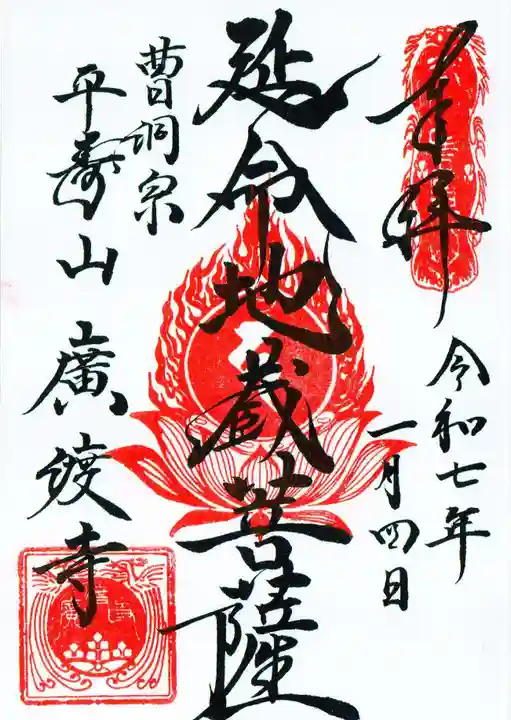 奉拝
令和七年
一月四日
延命地蔵菩薩
曹洞宗
平寿山廣渡寺